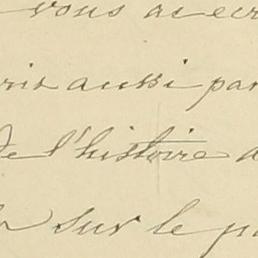 vous ai ecr
ris aussi par
de l'histoire d
sur le p